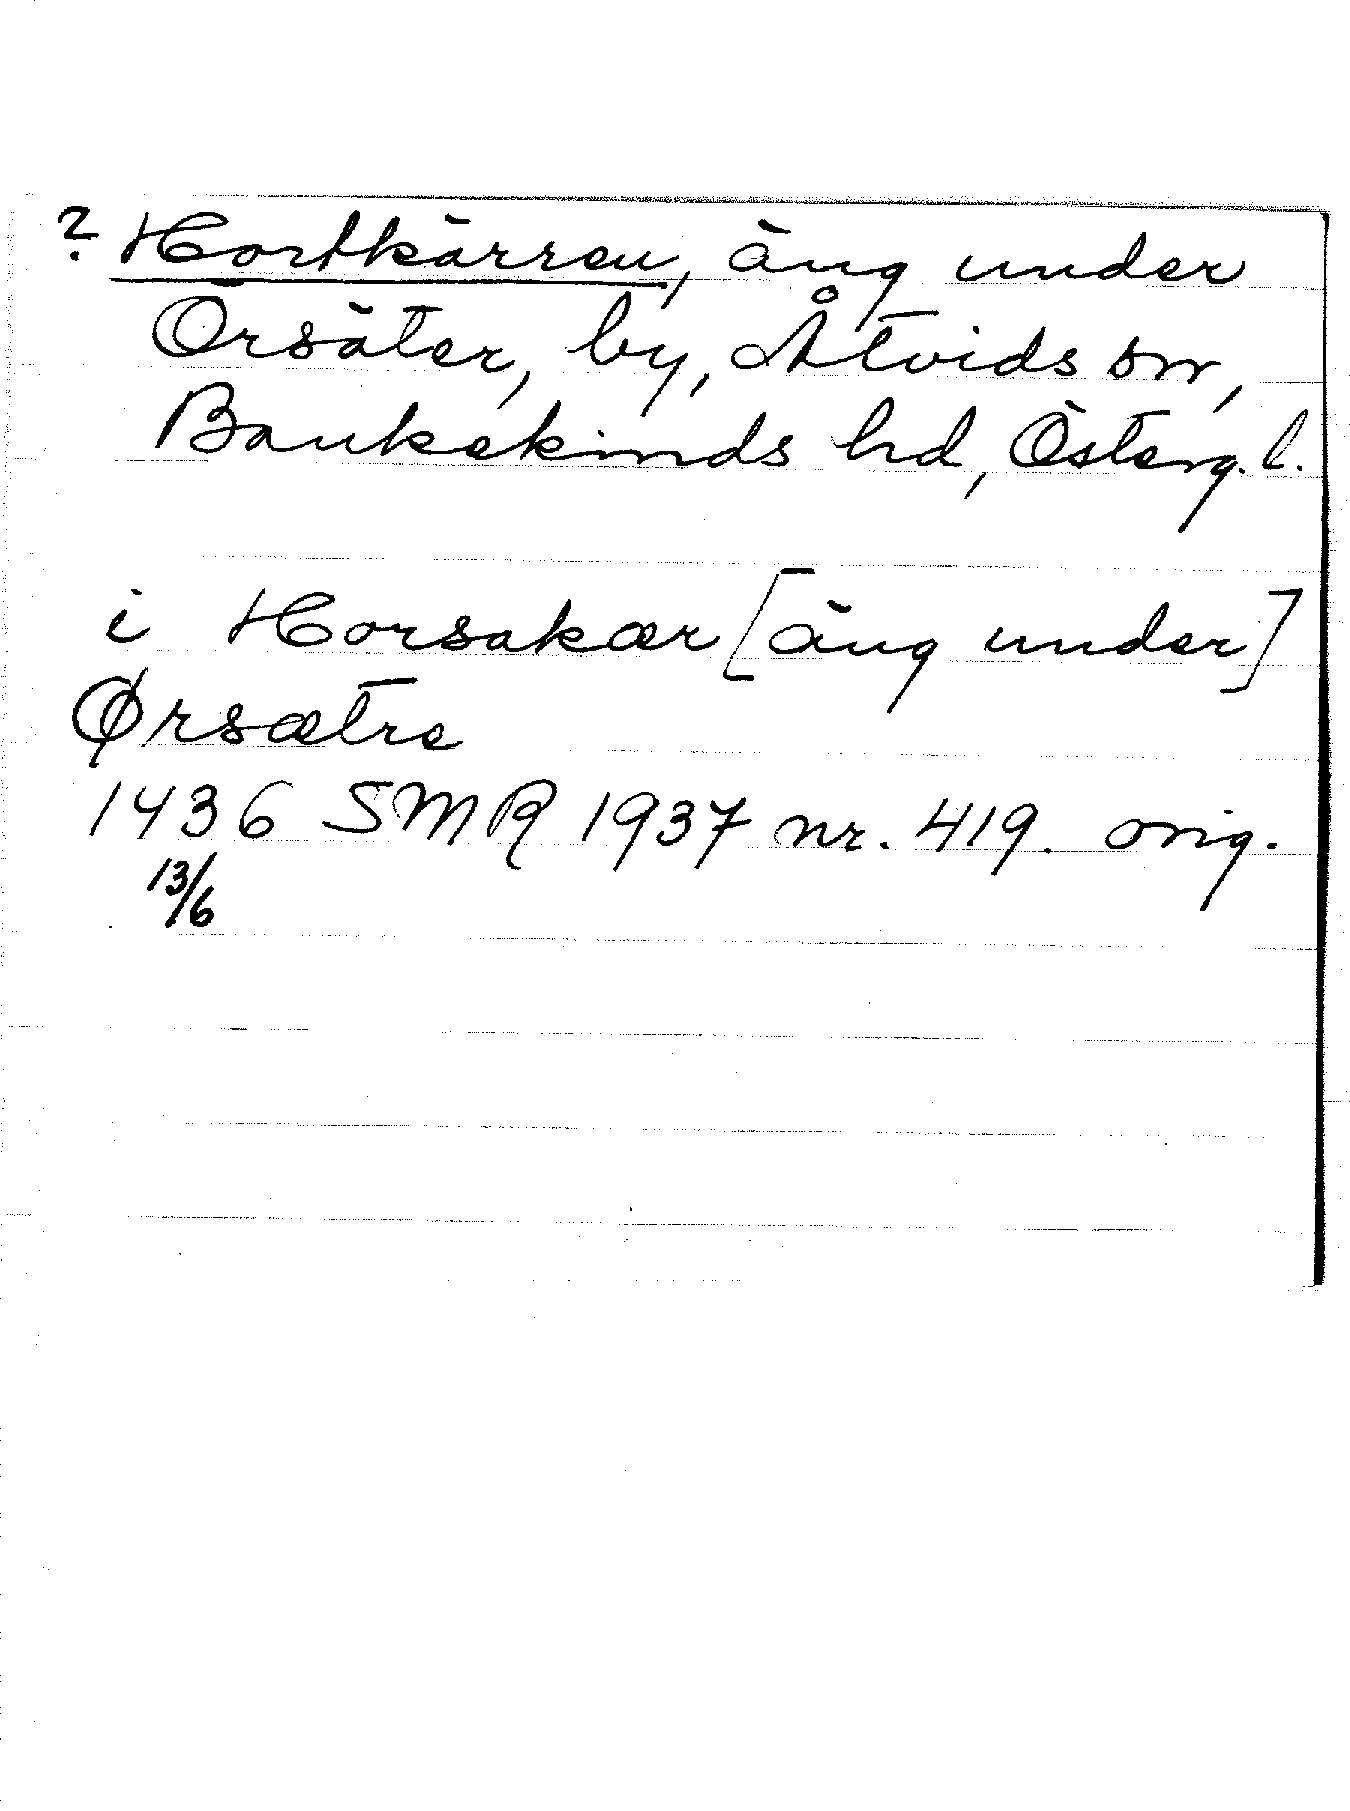 ? Hortkärren, äng under
Örsäter, by, Åtvids sn,
Bankekinds hd, Österg. l.
i Horsakær [äng under]
Ørsætre
1436 SMR 1937 nr. 419. orig.
13/6